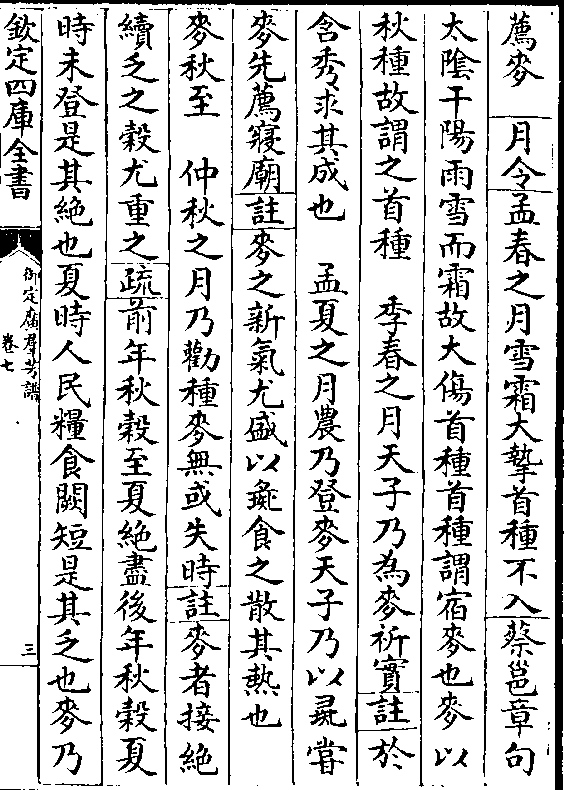 薦麥　月令孟春之月雪霜大摯首種不入蔡邕章句
太陰干陽雨雪而霜故大傷首種首種謂宿麥也麥以
秋種故謂之首種　季春之月天子乃為麥祈實註於
含秀求其成也　孟夏之月農乃登麥天子乃以彘嘗
麥先薦寢廟註麥之新氣尤盛以彘食之散其熱也
麥秋至　仲秋之月乃勸種麥無或失時註麥者接絶
續乏之穀尤重之疏前年秋穀至夏絶盡後年秋穀夏
時未登是其絶也夏時人民糧食闕短是其乏也麥乃
欽定四庫全書
御定廣羣芳譜
卷七
三